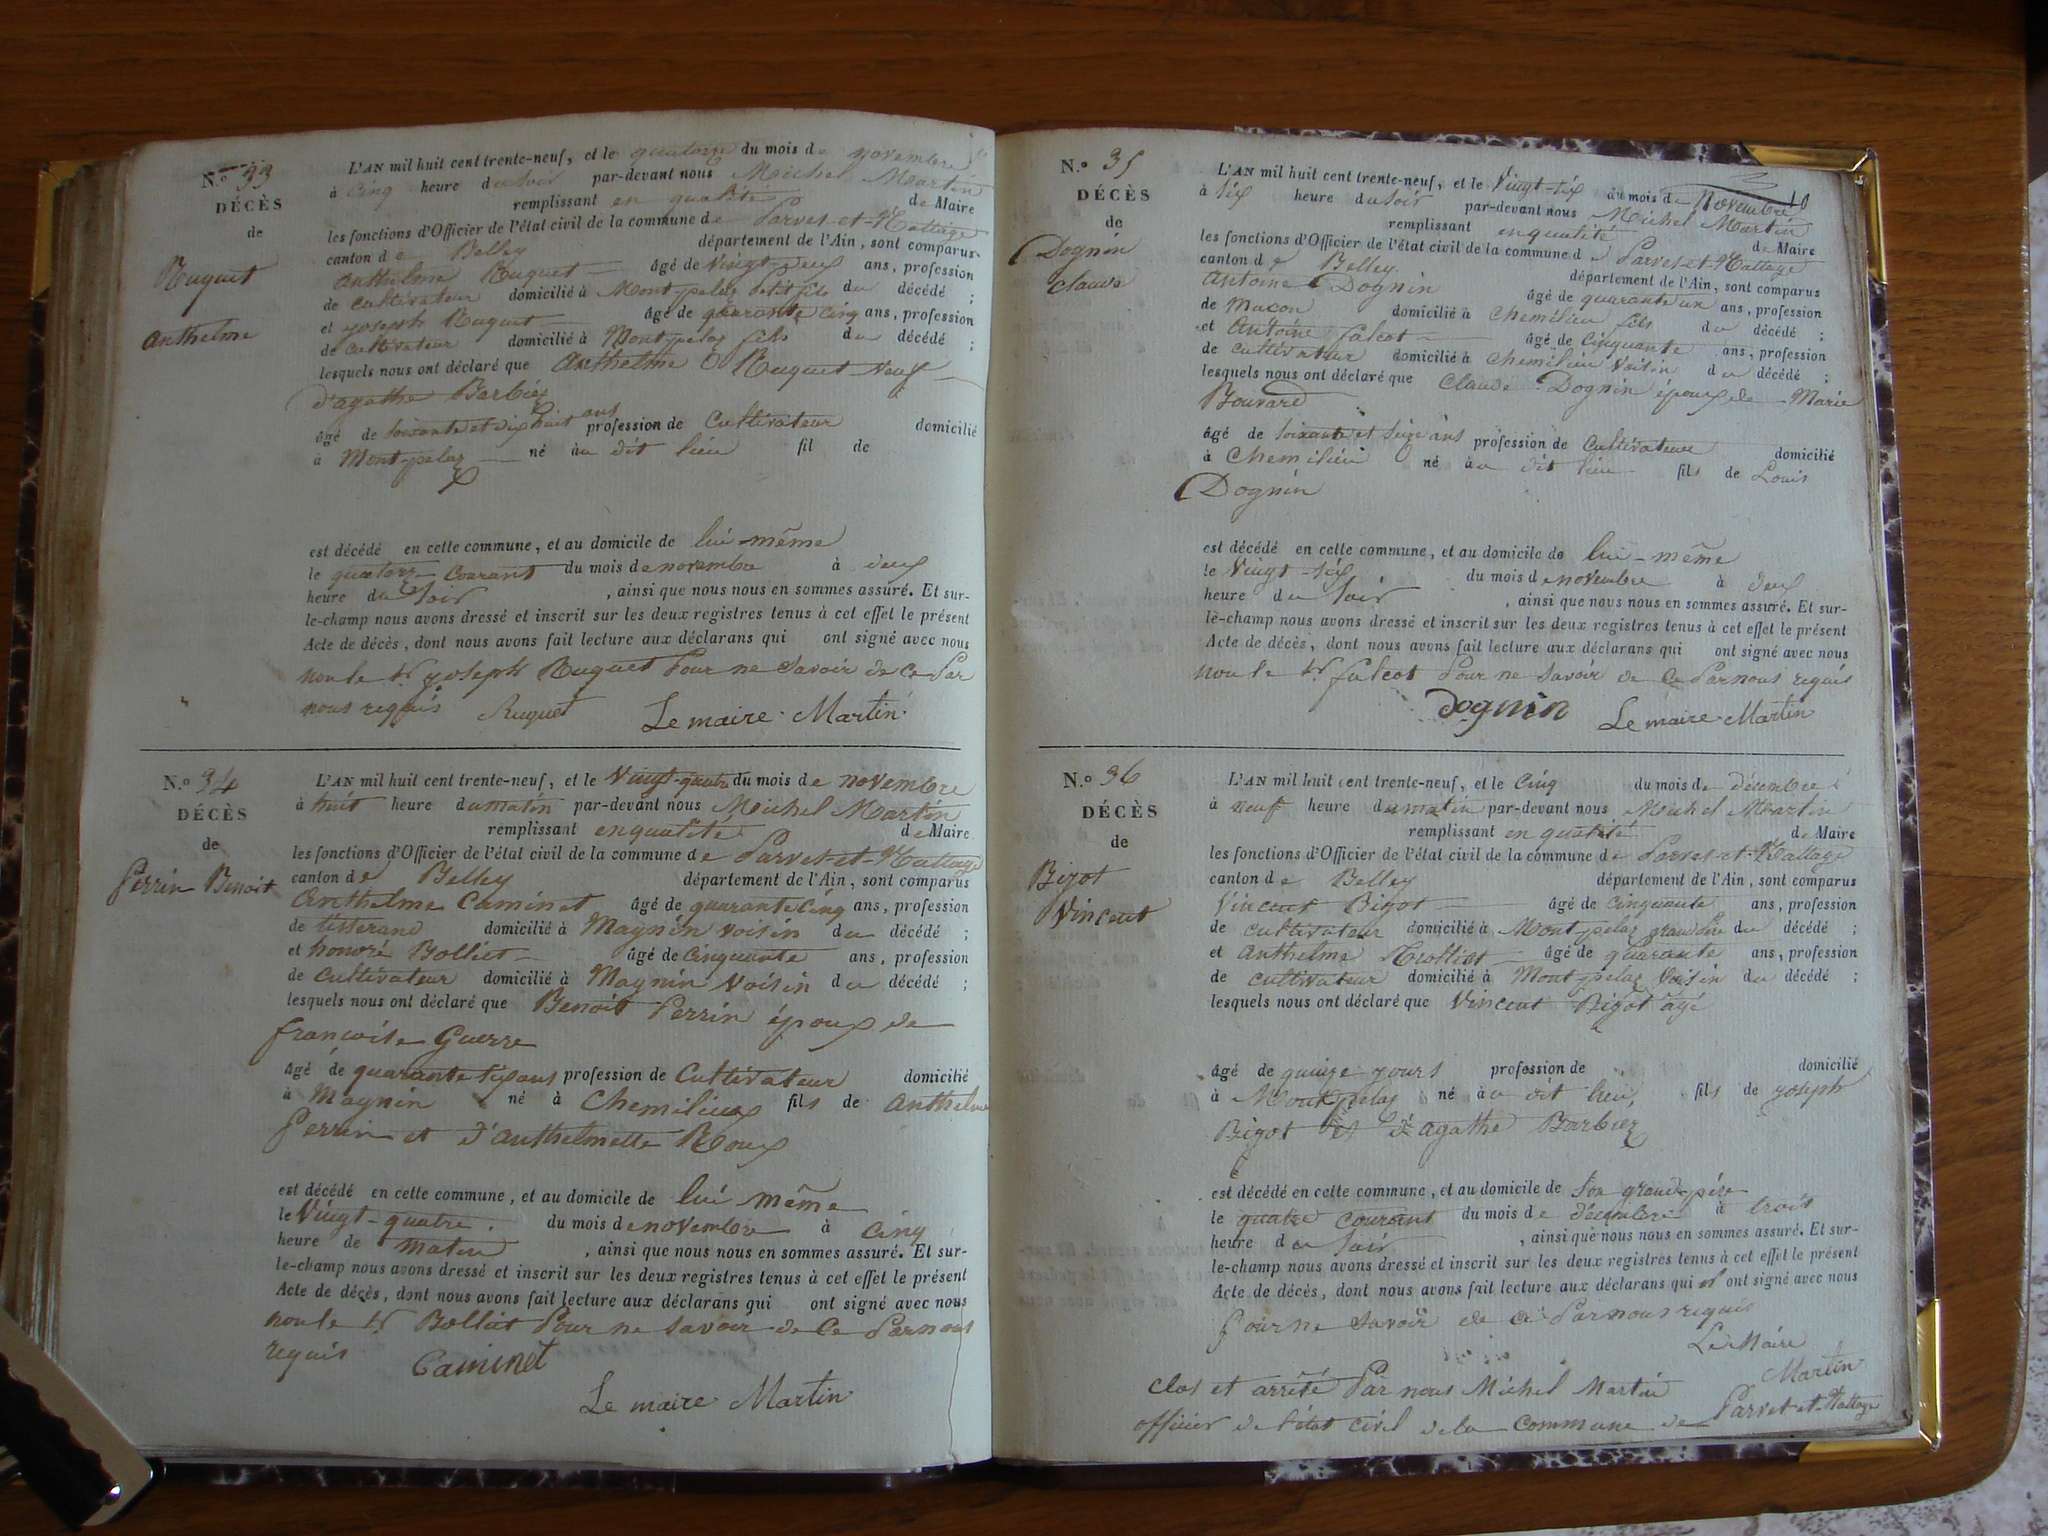 N.º 33
DÉCÈS
de
Ruguet
Anthelme
L'AN mil huit cent trente-neuf, et le quatorze du mois de novembre
à cinq heure du soir par-devant nous Michel Martin
remplissant en qualité de Maire
les fonctions d'Officier de l'état civil de la commune de Parves-et-Nattage
canton de Belley département de l'Ain, sont comparus
Anthelme Ruguet âgé de vingt-deux ans, profession
de cultivateur domicilié à Montpelaz petit fils du décédé ;
et joseph Ruguet âgé de quarante cinq ans, profession
de cultivateur domicilié à Montpelaz fils du décédé ;
lesquels nous ont déclaré que Anthelme Ruguet veuf
d'agathe Barbier
âgé de soixante et dix huit ans profession de Cultivateur domicilié
à Montpelaz né au dit lieu fil de
est décédé en cette commune, et au domicile de lui-même
le quatorze courant du mois de novembre à deux
heure du soir , ainsi que nous nous en sommes assuré. Et sur-
le-champ nous avons dressé et inscrit sur les deux registres tenus à cet effet le présent
Acte de décès, dont nous avons fait lecture aux déclarans qui ont signé avec nous
non le Sr joseph Ruguet Pour ne savoir de ce Par
nous requis Ruguet Le maire Martin
N.º 34
DÉCÈS
de
Perrin Benoit
L'AN mil huit cent trente-neuf, et le Vingt-quatre du mois de novembre
à huit heure du matin par-devant nous Michel Martin
remplissant en qualité de Maire
les fonctions d'Officier de l'état civil de la commune de Parves-et-Nattage
canton de Belley département de l'Ain, sont comparus
Anthelme Caminet âgé de quarante cinq ans, profession
de tisserand domicilié à Maynin voisin du décédé ;
et honoré Bolliet âgé de cinquante ans, profession
de cultivateur domicilié à Maynin Voisin du décédé ;
lesquels nous ont déclaré que Benoit Perrin époux de
francoise Guerre
âgé de quarante six ans profession de Cultivateur domicilié
à Maynin né à Chemilieux fils de Anthelme
Perrin et d'Anthelmette Roux
est décédé en cette commune, et au domicile de lui même
le Vingt-quatre du mois de novembre à cinq
heure de matin , ainsi que nous nous en sommes assuré. Et sur-
le-champ nous avons dressé et inscrit sur les deux registres tenus à cet effet le présent
Acte de décès, dont nous avons fait lecture aux déclarans qui ont signé avec nous
non le Sr Bolliet Pour ne savoir de ce Par nous
requis Caminet
Le maire Martin
N.º 35
DÉCÈS
de
Dognin
claude
L'AN mil huit cent trente-neuf, et le Vingt-six du mois de Novembre
à six heure du soir par-devant nous Michel Martin
remplissant en qualité de Maire
les fonctions d'Officier de l'état civil de la commune de Parves-et-Nattage
canton de Belley département de l'Ain, sont comparus
Antoine Dognin âgé de quarante un ans, profession
de macon domicilié à Chemilieu fils du décédé ;
et Antoine falcot âgé de cinquante ans, profession
de cultivateur domicilié à chemilieu Voisin du décédé ;
lesquels nous ont déclaré que Claude Dognin époux de Marie
Bouvard
âgé de soixante et seize ans profession de Cultivateur domicilié
à Chemilieu né au dit lieu fils de Louis
Dognin
est décédé en cette commune, et au domicile de lui-même
le Vingt-six du mois de novembre à deux
heure du soir , ainsi que nous nous en sommes assuré. Et sur-
le-champ nous avons dressé et inscrit sur les deux registres tenus à cet effet le présent
Acte de décès, dont nous avons fait lecture aux déclarans qui ont signé avec nous
non le Sr falcot Pour ne savoir de ce Par nous requis
Dognin Le maire Martin
N.º 36
DÉCÈS
de
Bigot
Vincent
L'AN mil huit cent trente-neuf, et le cinq du mois de décembre
à neuf heure du matin par-devant nous Michel Martin
remplissant en qualité de Maire
les fonctions d'Officier de l'état civil de la commune de Parves-et-Nattage
canton de Belley département de l'Ain, sont comparus
Vincent Bigot âgé de cinquante ans, profession
de cultivateur domicilié à Montpelaz grand père du décédé ;
et Anthelme Trolliet âgé de quarante ans, profession
de cultivateur domicilié à Montpelaz Voisin du décédé ;
lesquels nous ont déclaré que Vincent Bigot agé
âgé de quinze jours profession de domicilié
à Montpelaz né au dit lieu, fils de joseph
Bigot et d'agathe Barbier
est décédé en cette commune, et au domicile de son grand-père
le quatre courant du mois de décembre à trois
heure du soir , ainsi que nous nous en sommes assuré. Et sur-
le-champ nous avons dressé et inscrit sur les deux registres tenus à cet effet le présent
Acte de décès, dont nous avons fait lecture aux déclarans qui ont signé avec nous
Pour ne savoir de ce Par nous requis
Le Maire
Martin
Clos et arrêté Par nous Michel Martin
officier de l'état civil de la Commune de Parves-et-Nattage